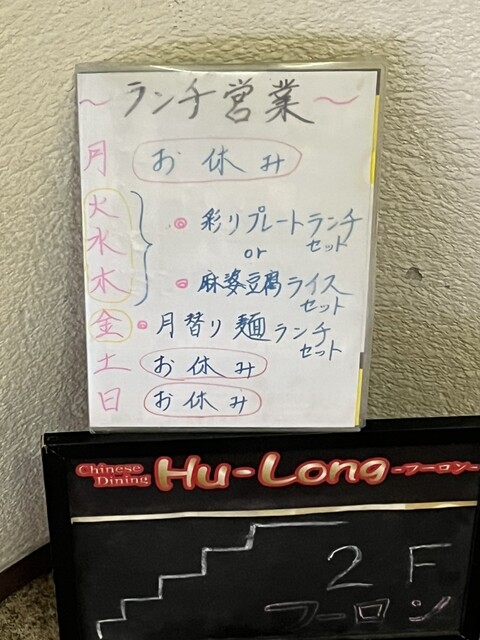 ～ランチ営業～
月 お休み
火 ・彩りプレートランチセット
水 or
木 ・麻婆豆腐ライスセット
金 ・月替り麺ランチセット
土 お休み
日 お休み
Chinese Dining Hu-Long -フーロン-
2F
フーロン